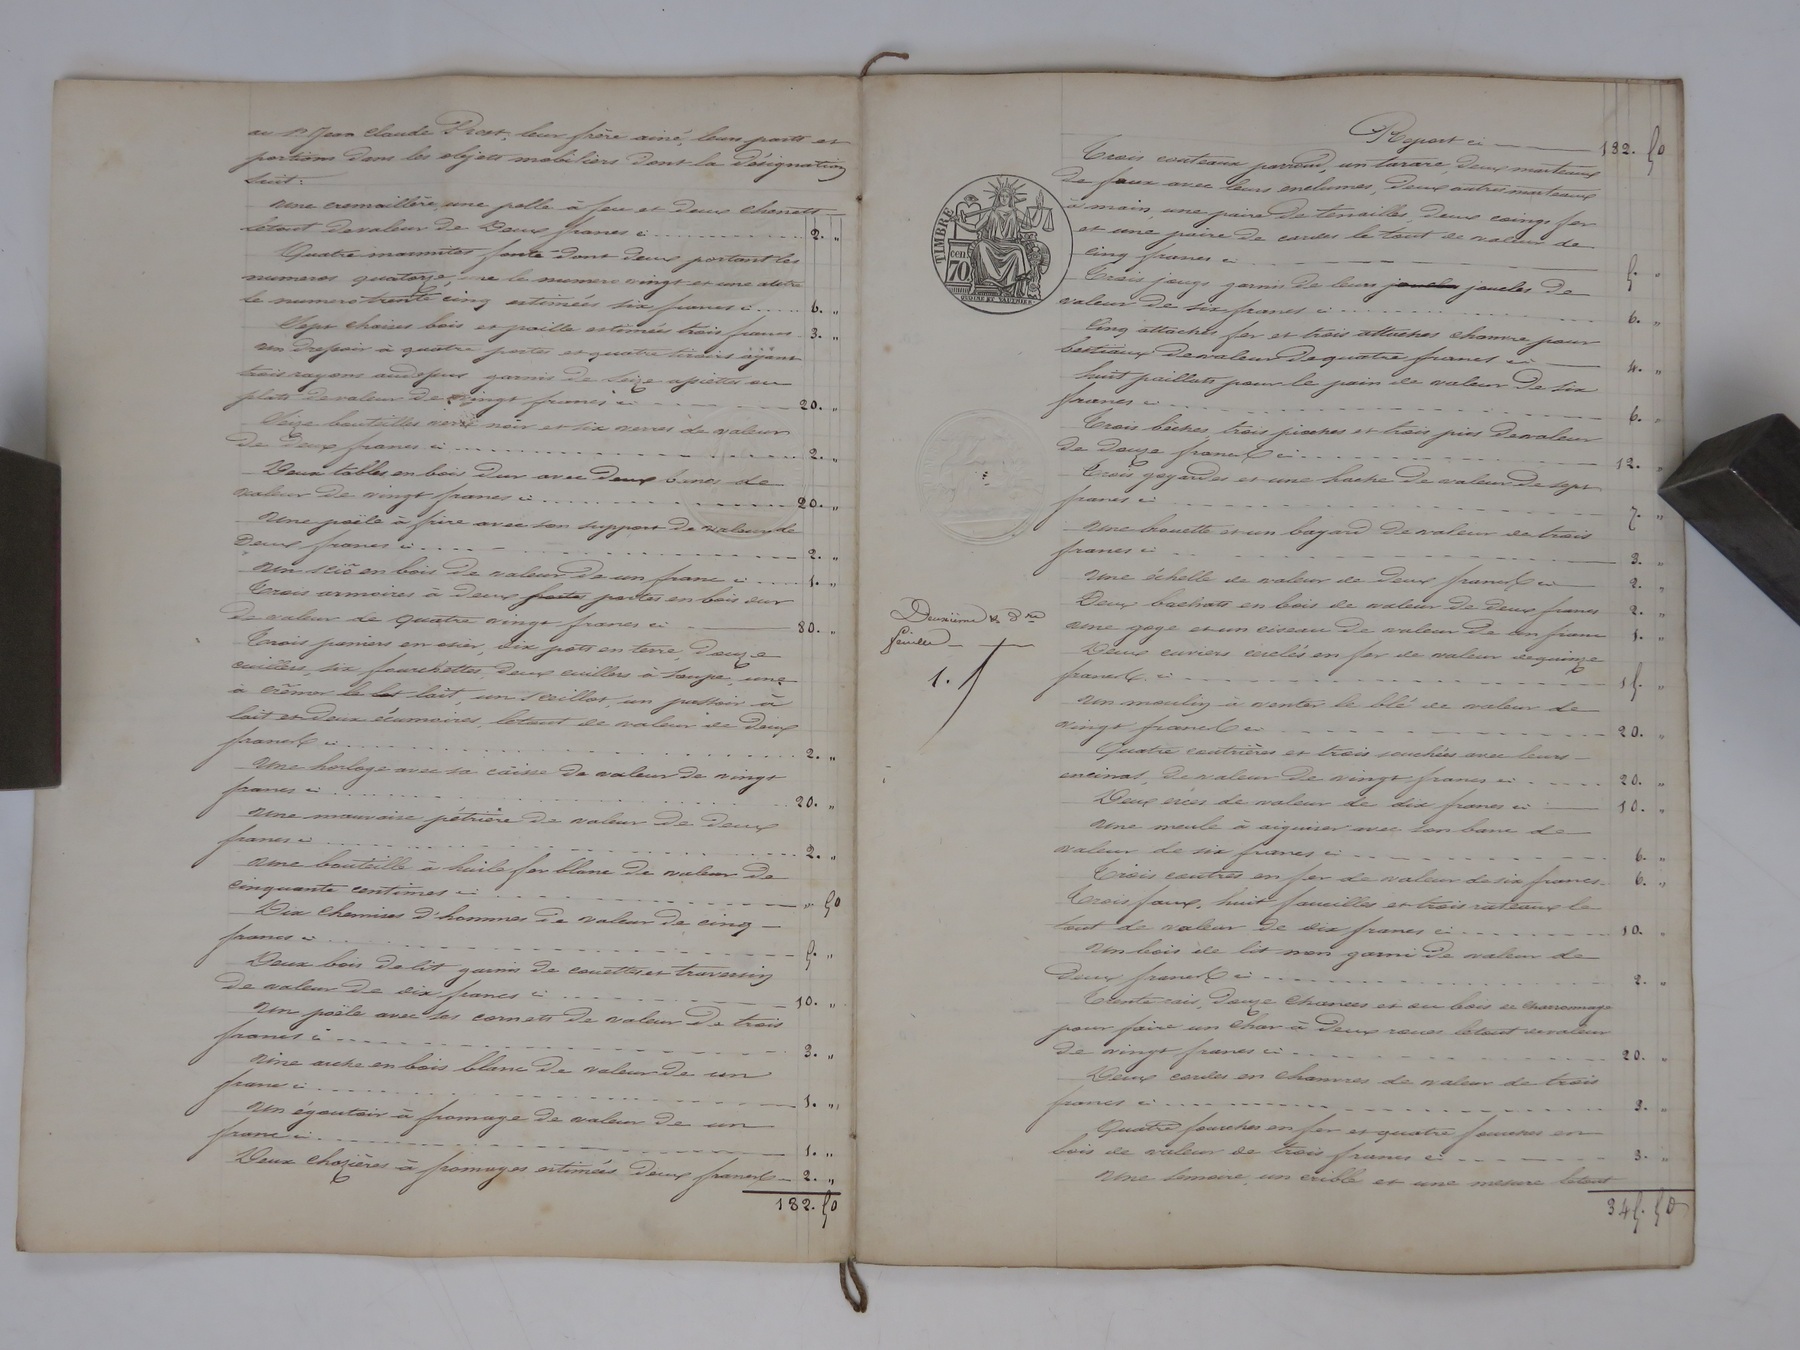 au Sr. Jean Claude Prost, leur frère ainé, leurs parts et
portions dans les objets mobiliers dont la désignation
suit:
Une cremaillère une pelle à feu et deux chenets
letout devaleur de Deux francs ci 2. "
Quatre marmites fonte dont deux portant les
numeros quatorze, une le numero vingt et une autre
le numero trente cinq estimées six francs ci 6. "
Sept chaises bois et paille estimées trois francs 3. "
Un dressoir à quatre portes et quatre tiroirs ayant
trois rayons audessus garnis de seize assiettes ou
plats devaleur de vingt francs ci 20. "
Seize bouteilles verre noir et six verres de valeur
de deux francs ci 2. "
Deux tables en bois dur avec deux bancs de
valeur de vingt francs ci 20. "
Une poële à frire avec son support de valeur de
Deux francs ci 2. "
Un en bois de valeur de un franc ci 1. "
Trois armoires à deux portes en bois dur
de valeur de quatre vingt francs ci 80. "
Trois paniers en osier, dix pots en terre, douze
cuillères, six fourchettes, deux cuillers à soupe, une
à crêmer le lait, un seillot, un passoir à
lait et deux écumoires, letout de valeur de deux
francs ci 2. "
Une horloge avec sa caisse de valeur de vingt
francs ci 20. "
Une mauvaise pétrière de valeur de deux
francs ci 2. "
Une bouteille à huile fer blanc de valeur de
cinquante centimes ci " 50
Dix chemises d'hommes de valeur de cinq
francs ci 5. "
Deux bois de lit garnis de couettes et traversin
de valeur de dix francs ci 10. "
Un poële avec ses cornets de valeur de trois
francs ci 3. "
Une arche en bois blanc de valeur de un
franc ci 1. "
Un égoutoir à fromage de valeur de un
franc ci 1. "
Deux chazières à fromages estimées deux francs 2. "
182. 50
Report ci 182. 50
Trois couteaux un tarare, deux marteaux
de faux avec leurs enclumes, deux autres marteaux
à main, une paire de tenailles, deux coings fer
et une paire de cardes le tout de valeur de
cinq francs ci 5. "
Trois jougs garnis de leurs joucles de
valeur de six francs ci 6. "
Cinq attaches fer et trois attaches chanvre pour
bestiaux devaleur de quatre francs ci 4. "
huit paillats pour le pain de valeur de six
francs ci 6. "
Trois bêches, trois pioches et trois pics devaleur
de douze francs ci 12. "
Trois goyardes et une hache de valeur de sept
francs ci 7. "
Une brouette et un bayard de valeur de trois
francs ci 3. "
Une échelle de valeur de deux francs ci 2. "
Deux bachats en bois de valeur de deux francs 2. "
Une goge et un ciseau de valeur de un franc 1. "
Deux cuviers cerclés en fer de valeur dequinze
francs ci 15. "
Un moulin à venter le blé de valeur de
vingt francs ci 20. "
Quatre coutrières et trois souchées avec leurs
de valeur de vingt francs ci 20. "
Deux de valeur de dix francs ci 10. "
Une meule à aiguiser avec son banc de
valeur de six francs ci 6. "
Trois coutres en fer de valeur de six francs 6. "
Trois faux, huit faucilles et trois rateaux le
tout de valeur de dix francs ci 10. "
Un bois de lit non garni de valeur de
deux francs ci 2. "
Trente rais, douze et du bois de charronnage
pour faire un char à deux roues letout devaleur
de vingt francs ci 20. "
Deux cordes en chanvres de valeur de trois
francs ci 3. "
Quatre fourches en fer et quatre fourches en
bois de valeur de trois francs ci 3. "
Une semoire, un crible et une mesure letout
345. 50
TIMBRE
70 cen
Deuxième & Dre
feuille
1.